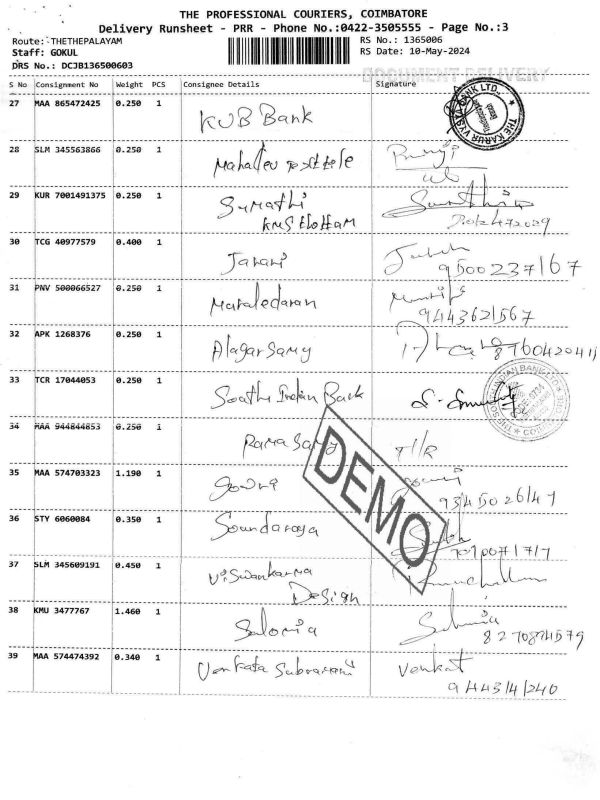 THE PROFESSIONAL COURIERS, COIMBATORE
Delivery Runsheet - PRR - Phone No.:0422-3505555 - Page No.:3
Route:-THETHEPALAYAM RS No.: 1365006
Staff: GOKUL RS Date: 10-May-2024
DRS No.: DCJB136500603
DOCUMENT DELIVERY
S No Consignment No Weight PCS Consignee Details Signature
27 MAA 865472425 0.250 1 KUB Bank
THE KARUR VYSYA BANK LTD.
28 SLM 345563866 0.250 1 Mahadev
29 KUR 7001491375 0.250 1 Sumathi
30 TCG 40977579 0.400 1 Janani
9500237167
31 PNV 500066527 0.250 1
9443621567
32 APK 1268376 0.250 1 Alagarsamy
8760420411
33 TCR 17044053 0.250 1 South Indian Bank
34 MAA 944844853 0.250 1 Rama Samy T/R
35 MAA 574703323 1.190 1 Gowri
9345026147
36 STY 6060084 0.350 1 Soundaraya
37 SLM 345609191 0.450 1 Viswankarma
Design
38 KMU 3477767 1.460 1 Saloria
8270874579
39 MAA 574474392 0.340 1 Venkata Subramani Venkat
9443141240
DEMO